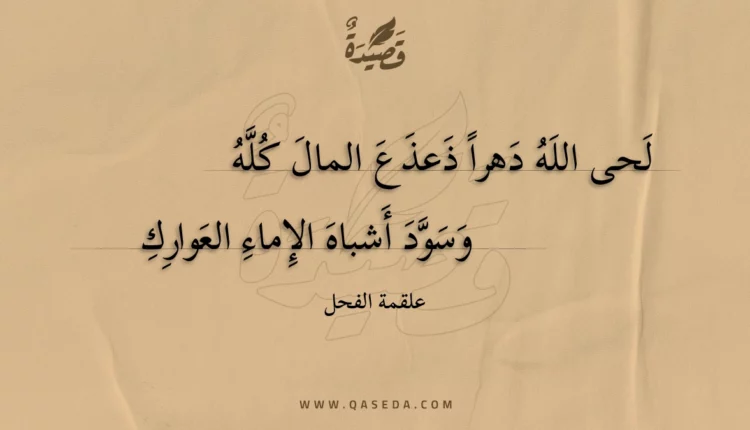 قَصِيْدَةٌ
لَحى اللَهُ دَهراً ذَعذَعَ المالَ كُلَّهُ
وَسَوَّدَ أَشباهَ الإِماءِ العَوارِكِ
علقمة الفحل
WWW.QASEDA.COM